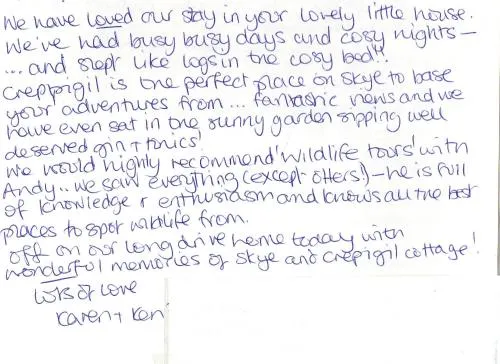 We have loved our stay in your lovely little house.
We've had busy busy days and cosy nights –
... and slept like logs in the cosy bed!!
Crepigil is the perfect place on Skye to base
your adventures from... fantastic views and we
have even sat in the sunny garden sipping well
deserved gin + tonics!
We would highly recommend 'Wildlife Tours' with
Andy.. we saw everything (except otters!) – he is full
of knowledge + enthusiasm and knows all the best
places to spot wildlife from.
Off on our long drive home today with
wonderful memories of Skye and Crepigil cottage!
Lots of love
Karen + Ken